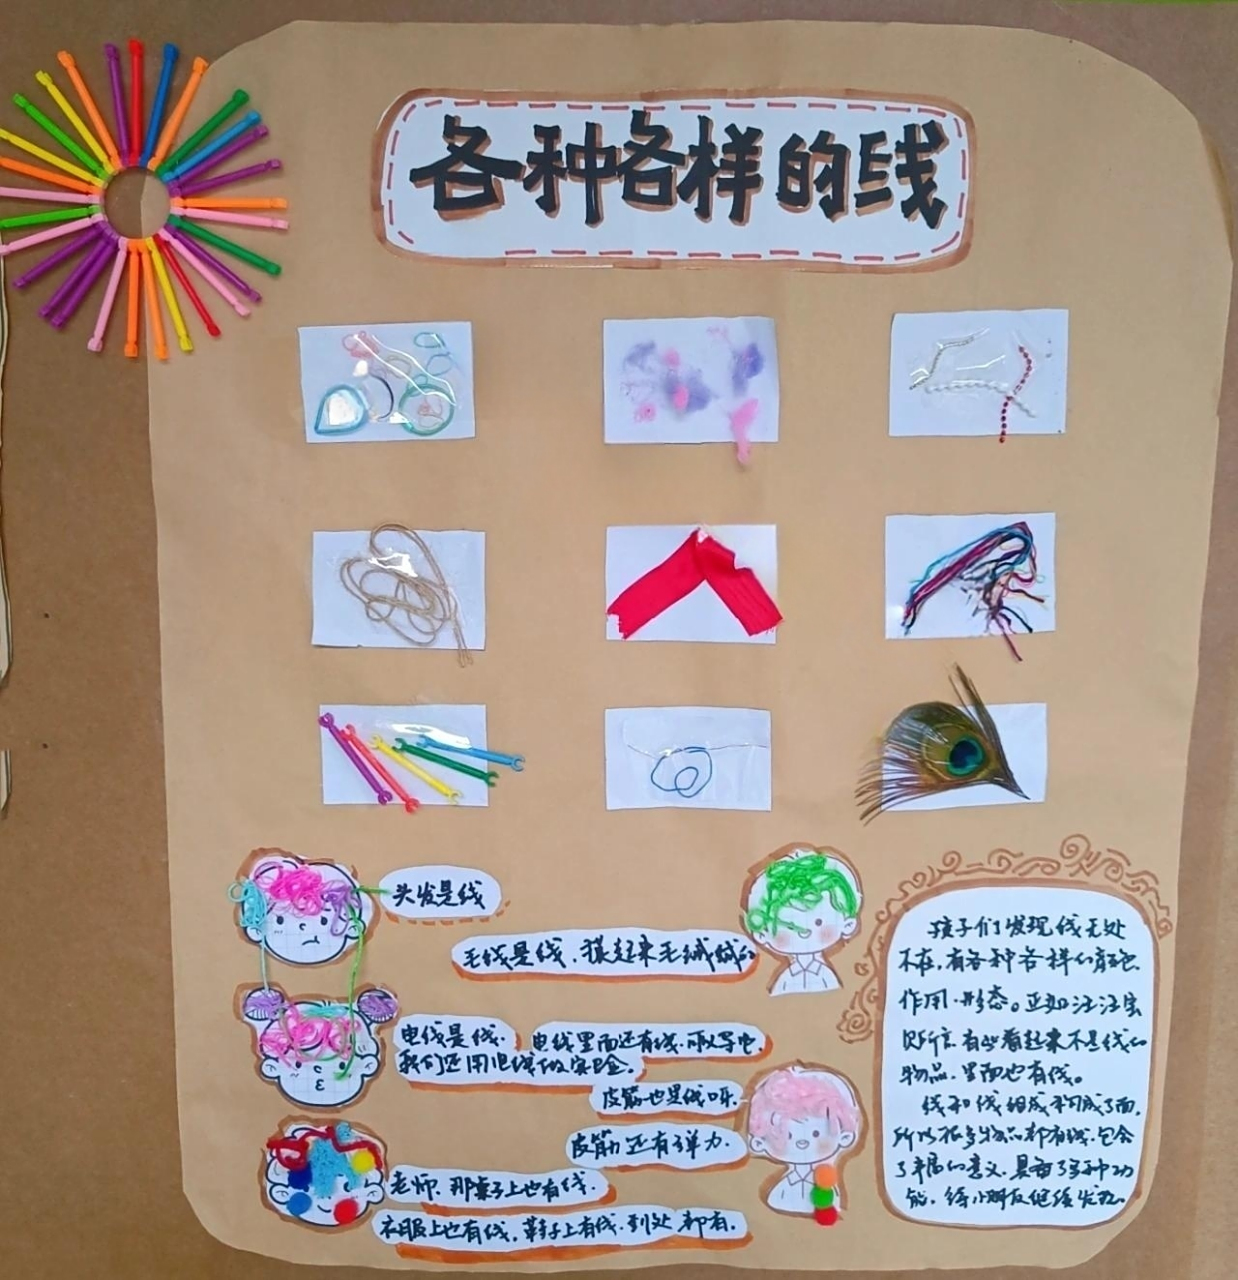 各种各样的线
头发是线
毛线是线.摸起来毛绒绒的
电线是线.
我们还用电线做实验.
电线里面还有线.可以导电.
皮筋也是线呀.
皮筋还有弹力.
老师.那桌子上也有线.
衣服上也有线.鞋子上有线.到处都有.
孩子们发现线无处
不在.有各种各样的颜色.
作用.形态。正如汪汪宝
贝所言.有些看起来不是线的
物品.里面也有线。
线和线组成构成了面.
所以很多物品都有线.包含
了丰富的意义.具备了多种功
能.待小朋友继续发现.